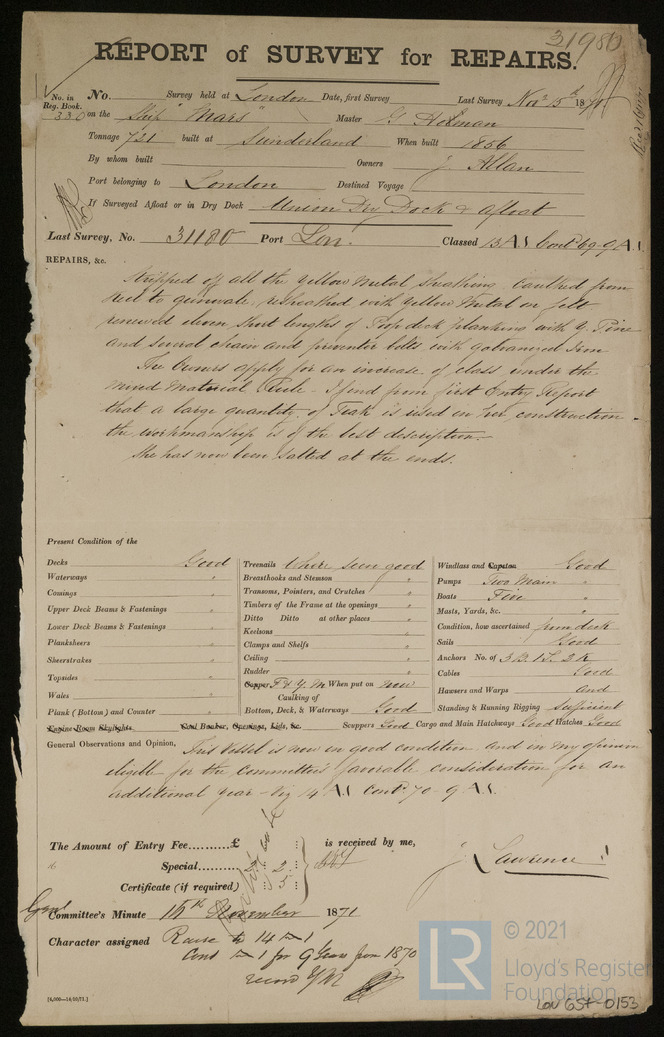 31980
REPORT of SURVEY for REPAIRS.
No. in Reg. Book. No. Survey held at London Date, first Survey Last Survey Novr 15th 1871
330 on the Ship "Mars" Master G Holman
Tonnage 721 built at Sunderland When built 1856
By whom built Owners J. Allan
Port belonging to London Destined Voyage
If Surveyed Afloat or in Dry Dock Union Dry Dock & afloat
Last Survey, No. 31180 Port Lon. Classed 13 A 1 Contd 69-9 A 1.
REPAIRS, &c.
Stripped of all the Yellow Metal Sheathing Caulked from
Keel to gunwale, resheathed with Yellow Metal on felt
renewed eleven short lengths of Poop deck planking with Y. Pine
and several chain and preventer bolts with galvanized Iron
The Owners apply for an increase of class under the
mixed Material Rule - I find from first Entry Report
that a large quantity of Teak is used in her construction -
the workmanship is of the best description -
She has now been salted at the ends.
Present Condition of the
Decks Good
Waterways "
Comings "
Upper Deck Beams & Fastenings "
Lower Deck Beams & Fastenings "
Planksheers "
Sheerstrakes "
Topsides "
Wales "
Plank (Bottom) and Counter "
Engine Room Skylights. Coal Bunker, Openings, Lids, &c.
Treenails Where seen good
Breasthooks and Stemson "
Transoms, Pointers, and Crutches "
Timbers of the Frame at the openings "
Ditto Ditto at other places "
Keelsons "
Clamps and Shelfs "
Ceiling "
Rudder "
Copper F & Y. M When put on now
Caulking of
Bottom, Deck, & Waterways Good
Windlass and Capstan Good
Pumps Two Main "
Boats Five "
Masts, Yards, &c. "
Condition, how ascertained from deck
Sails Good
Anchors No. of 3 B. 1 S. 2 K
Cables Good
Hawsers and Warps and
Standing & Running Rigging sufficient
Scuppers Good Cargo and Main Hatchways Good Hatches Good
General Observations and Opinion, This Vessel is now in good condition and in my opinion
eligible for the Committee's favorable consideration for an
additional year - Viz 14 A 1 Contd 70 - 9 A 1.
The Amount of Entry Fee..........£ is received by me,
Special..........
Certificate (if required)
J Lawrence
Committee's Minute 16th November 1871
Character assigned Raise to 14 A 1
Cont A 1 for 9 Years from 1870
record Y/M
[6,000—14/10/71.]
© 2021
LR
Lloyd's Register
Foundation
LON 657-0153